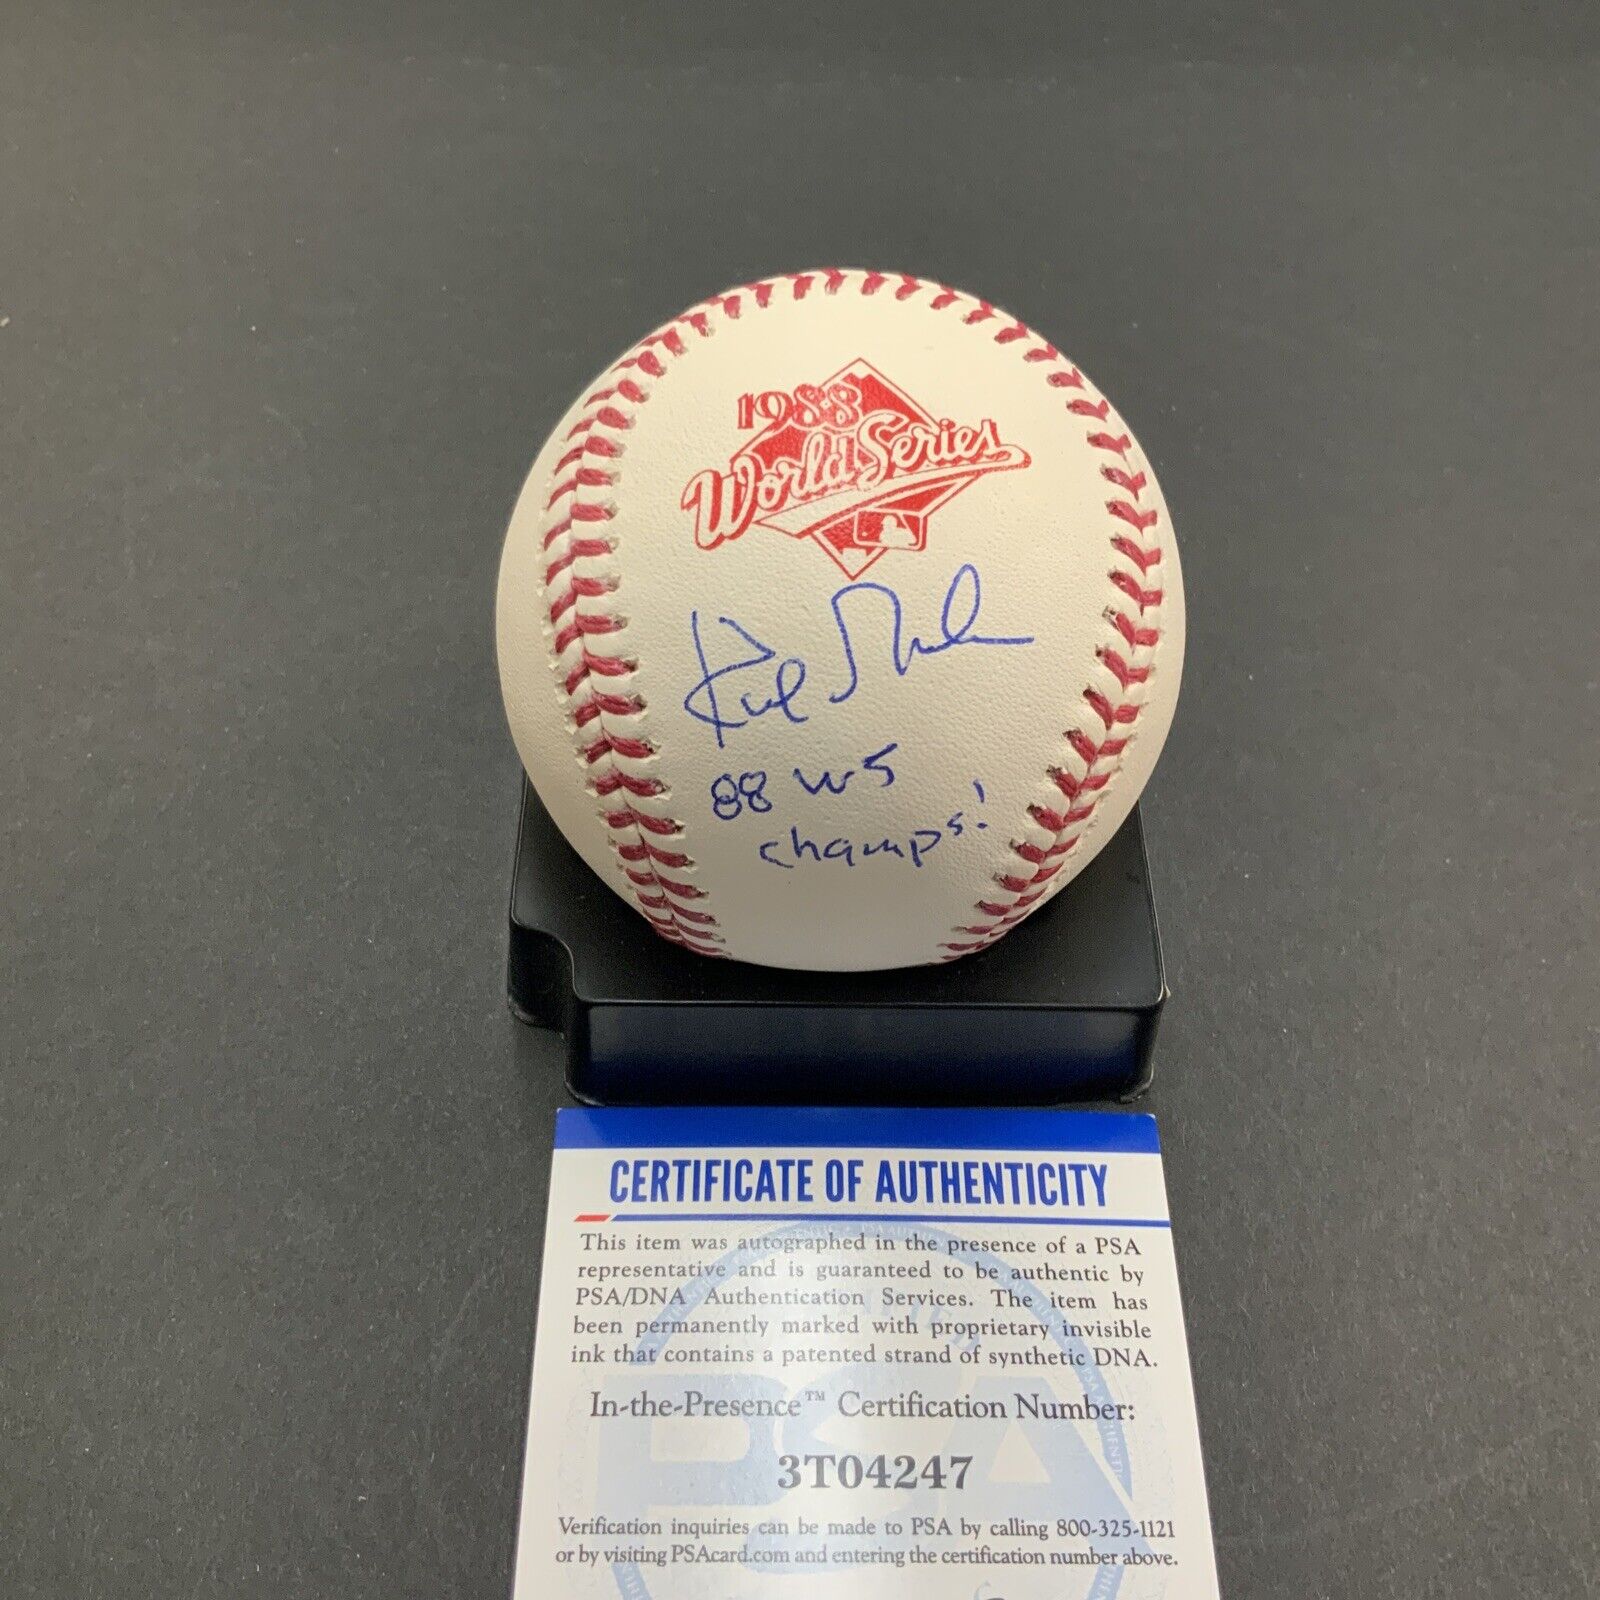 1988
World Series
88 WS
champs!
CERTIFICATE OF AUTHENTICITY
This item was autographed in the presence of a PSA
representative and is guaranteed to be authentic by
PSA/DNA Authentication Services. The item has
been permanently marked with proprietary invisible
ink that contains a patented strand of synthetic DNA.
In-the-Presence™ Certification Number:
3T04247
Verification inquiries can be made to PSA by calling 800-325-1121
or by visiting PSAcard.com and entering the certification number above.